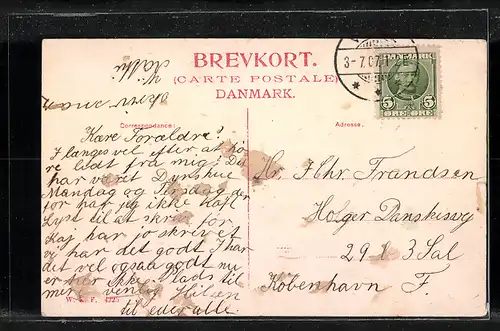 BREVKORT.
(CARTE POSTALE)
DANMARK.
3-7.07.1-2E
DANMARK
5 5
ØRE ØRE
Correspondance:
Adresse.
Kære Forældre!
I længes vel efter at hø
re lidt fra mig. Du
har været
Mandag og Tirsdag der
for har jeg ikke haft
Lyst til at skriv før
Kaj har jo skrevet
vi har det godt I har
det vel ogsaa godt nu
er her ikke Plads til
mer venlig Hilsen
til eder alle
Hr. J. Chr. Frandsen
Holger Danskesvej
29 1 3 Sal
København F.
W. & F. 4725